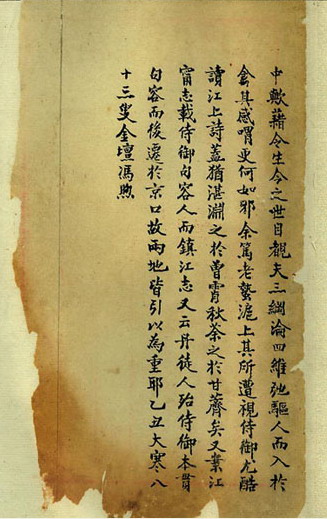 中歟藉令生今之世目覩夫三綱淪四維弛驅人而入於
禽其感喟更何如邪余篤老蟄滬上其所遭視侍御尤酷
讀江上詩蓋猶湛淵之於曾霄秋荼之於甘薺矣又案江
甯志載侍御句容人而鎮江志又云丹徒人殆侍御本貫
句容而後遷於京口故兩地皆引以為重耶乙丑大寒八
十三叟金壇馮煦